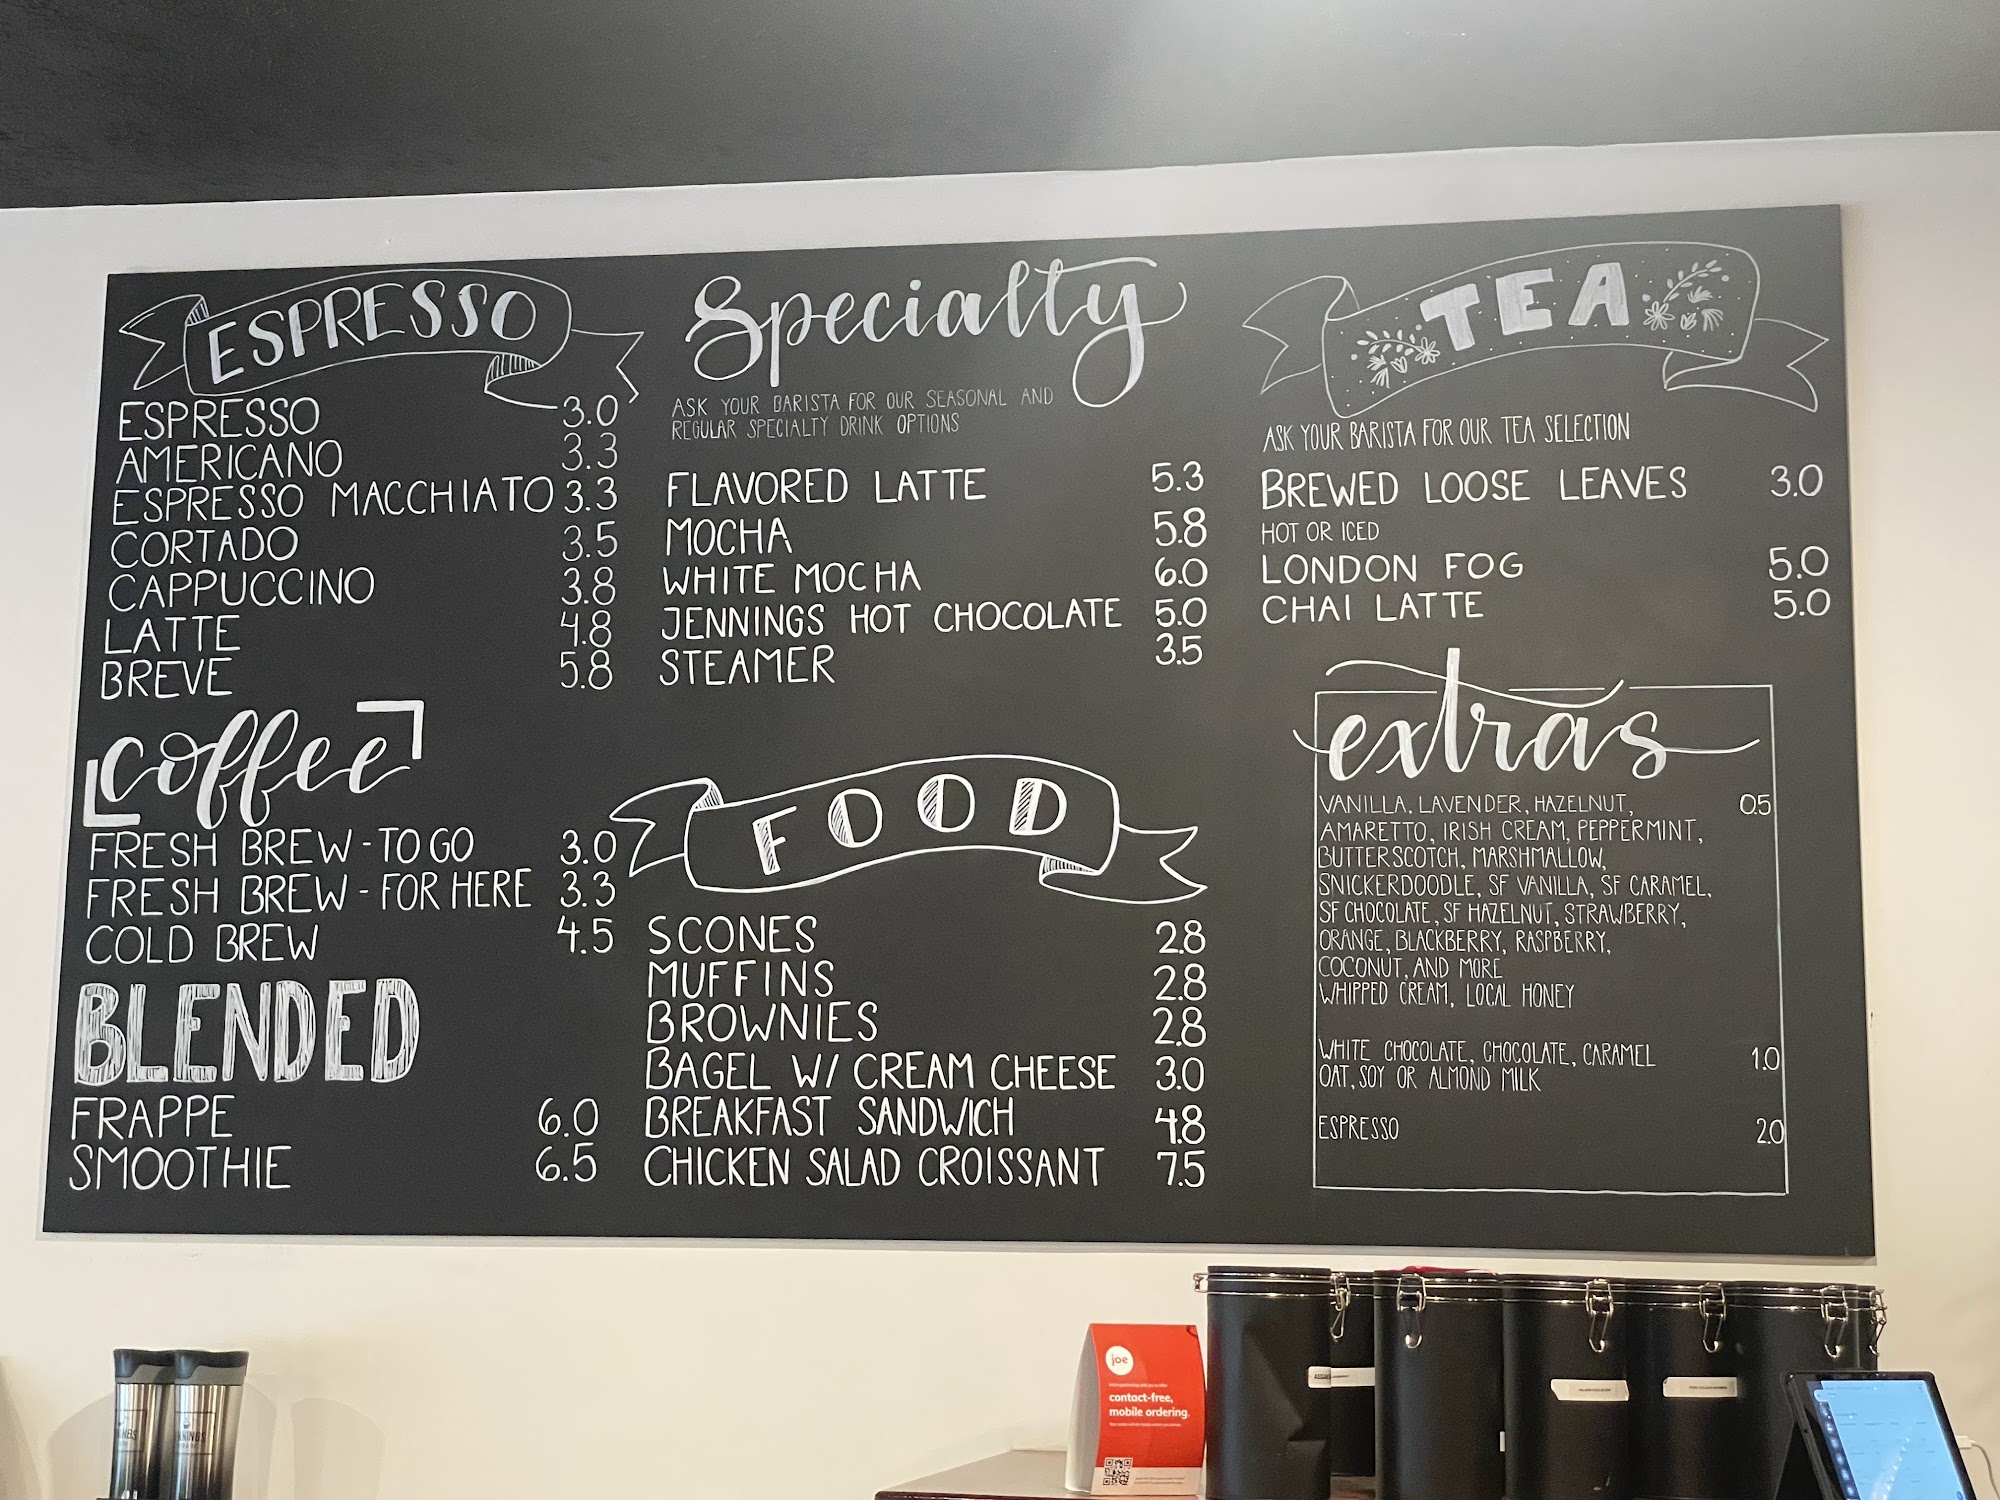 ESPRESSO
ESPRESSO 3.0
AMERICANO 3.3
ESPRESSO MACCHIATO 3.3
CORTADO 3.5
CAPPUCCINO 3.8
LATTE 4.8
BREVE 5.8
coffee
FRESH BREW - TO GO 3.0
FRESH BREW - FOR HERE 3.3
COLD BREW 4.5
BLENDED
FRAPPE 6.0
SMOOTHIE 6.5
Specialty
ASK YOUR BARISTA FOR OUR SEASONAL AND
REGULAR SPECIALTY DRINK OPTIONS
FLAVORED LATTE 5.3
MOCHA 5.8
WHITE MOCHA 6.0
JENNINGS HOT CHOCOLATE 5.0
STEAMER 3.5
FOOD
SCONES 2.8
MUFFINS 2.8
BROWNIES 2.8
BAGEL W/ CREAM CHEESE 3.0
BREAKFAST SANDWICH 4.8
CHICKEN SALAD CROISSANT 7.5
TEA
ASK YOUR BARISTA FOR OUR TEA SELECTION
BREWED LOOSE LEAVES 3.0
HOT OR ICED
LONDON FOG 5.0
CHAI LATTE 5.0
extras
VANILLA, LAVENDER, HAZELNUT, 0.5
AMARETTO, IRISH CREAM, PEPPERMINT,
BUTTERSCOTCH, MARSHMALLOW,
SNICKERDOODLE, SF VANILLA, SF CARAMEL,
SF CHOCOLATE, SF HAZELNUT, STRAWBERRY,
ORANGE, BLACKBERRY, RASPBERRY,
COCONUT, AND MORE
WHIPPED CREAM, LOCAL HONEY
WHITE CHOCOLATE, CHOCOLATE, CARAMEL 1.0
OAT, SOY OR ALMOND MILK
ESPRESSO 2.0
joe
contact-free,
mobile ordering.